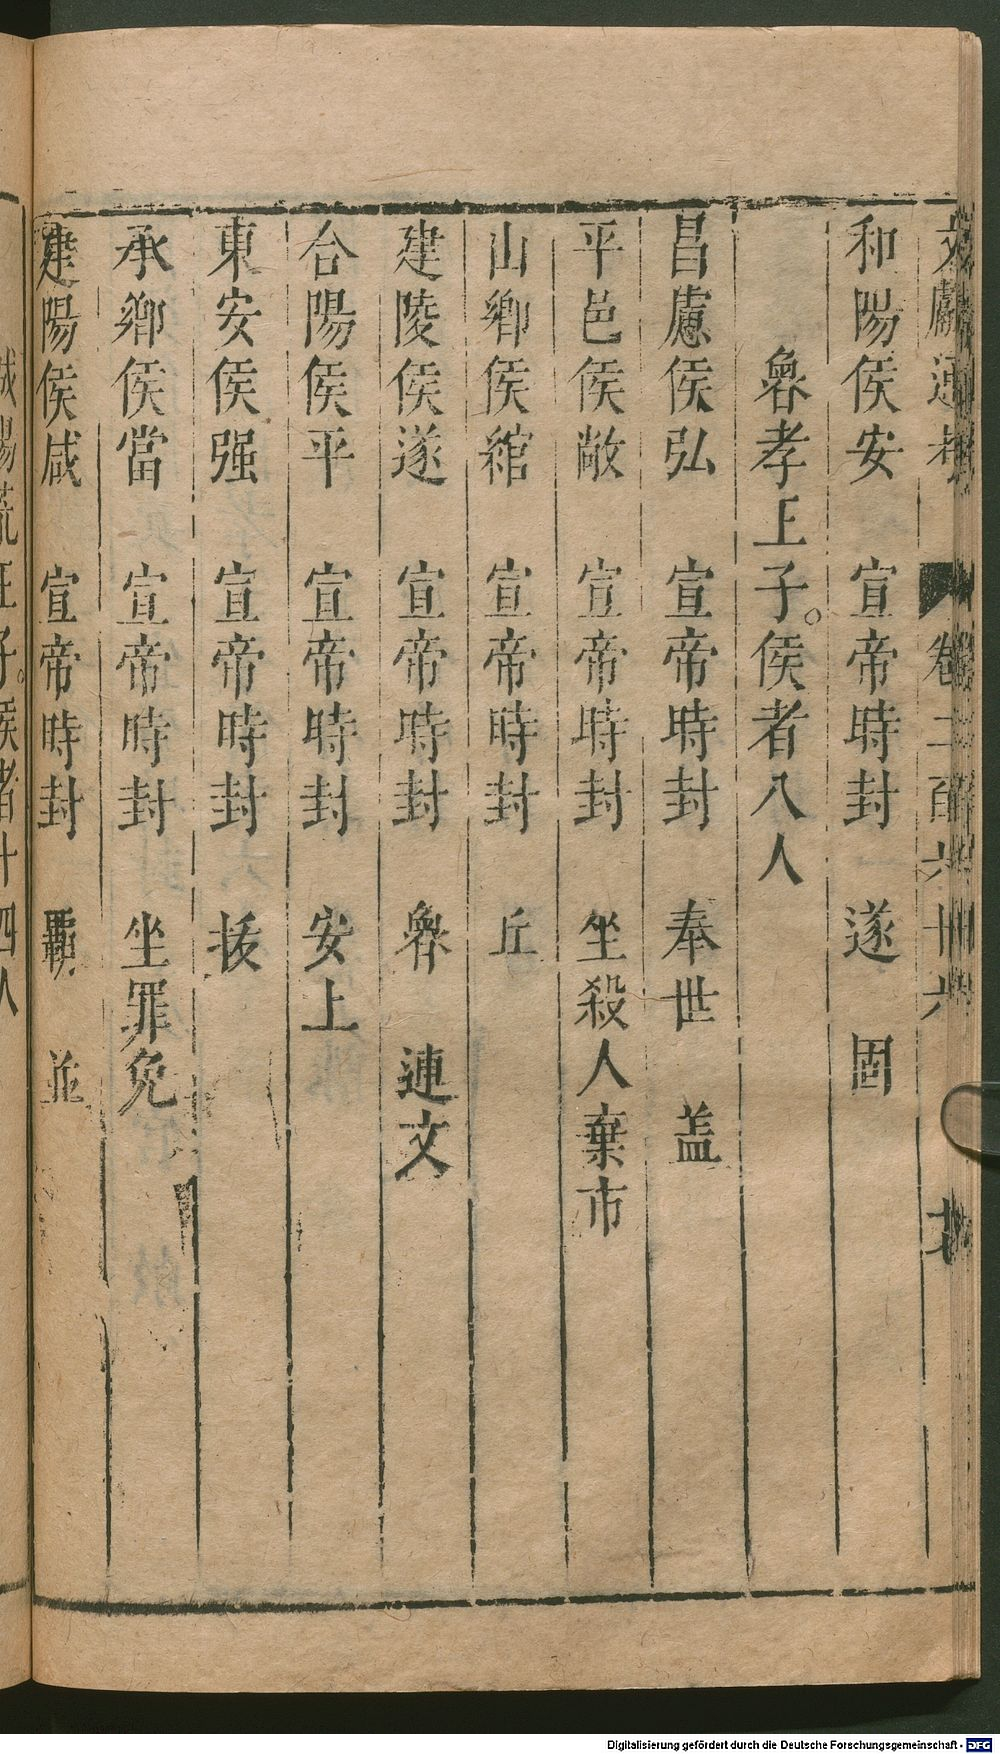 和陽侯安 宣帝時封 遂 固
魯孝王子侯者八人
昌慮侯弘 宣帝時封 奉世 盖
平邑侯敞 宣帝時封 坐殺人棄市
山鄉侯綰 宣帝時封 丘
建陵侯遂 宣帝時封 魯 連文
合陽侯平 宣帝時封 安上
東安侯强 宣帝時封 拔
承鄉侯當 宣帝時封 坐罪免
建陽侯咸 宣帝時封 霸 並
王子侯者十四人
Digitalisierung gefördert durch die Deutsche Forschungsgemeinschaft - DFG